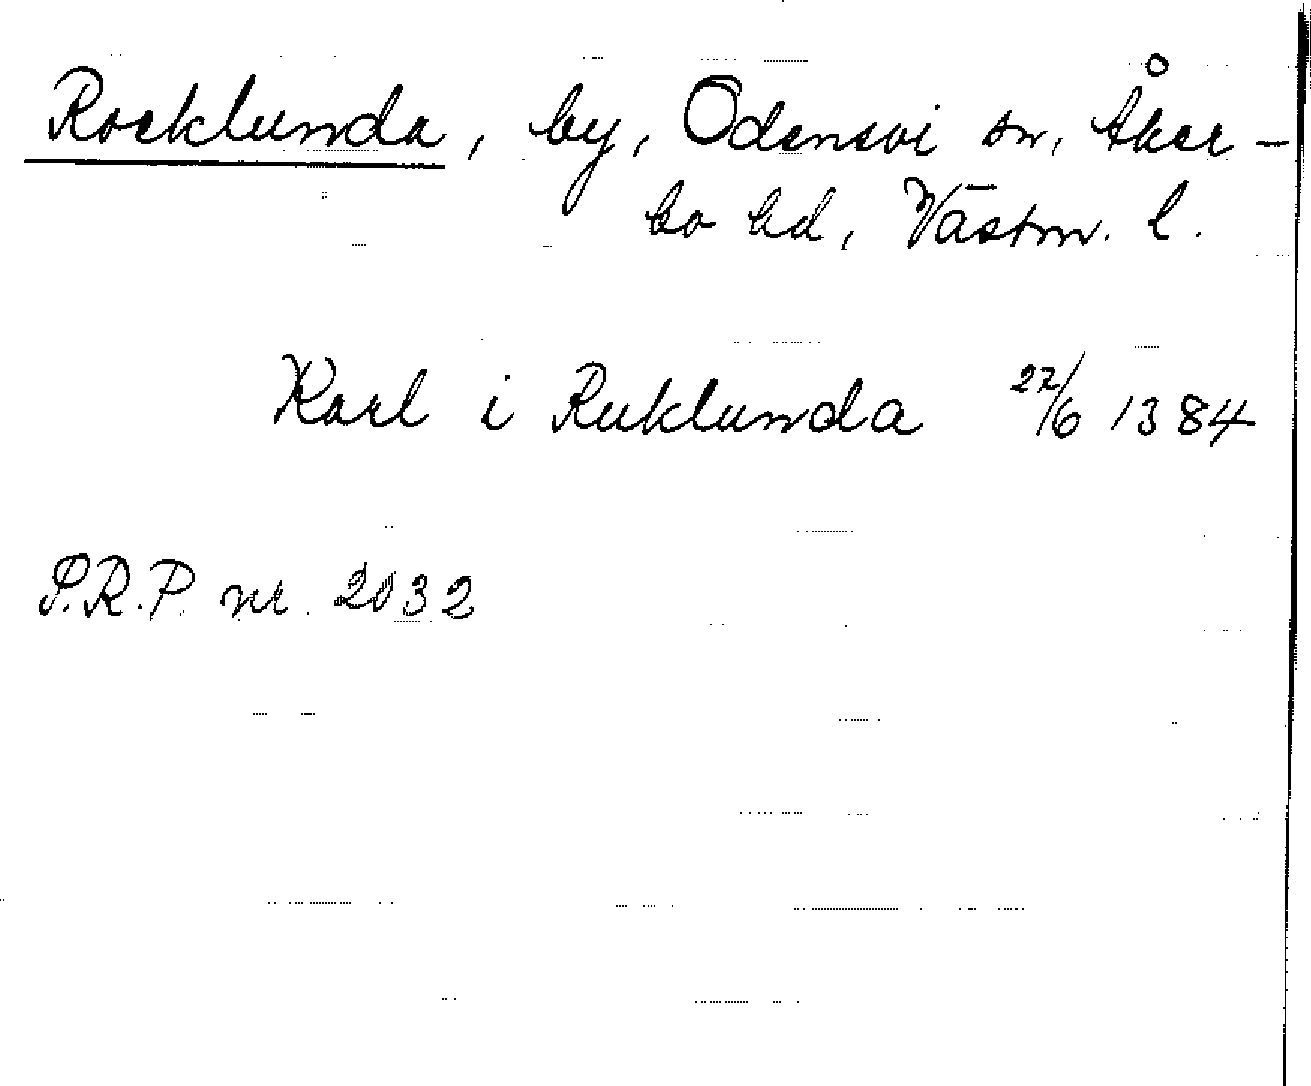 Rocklunda, by, Odensvi sn, Åker-
bo hd, Västm. l.
Karl i Ruklunda 22/6 1384
S.R.P. nr. 2032